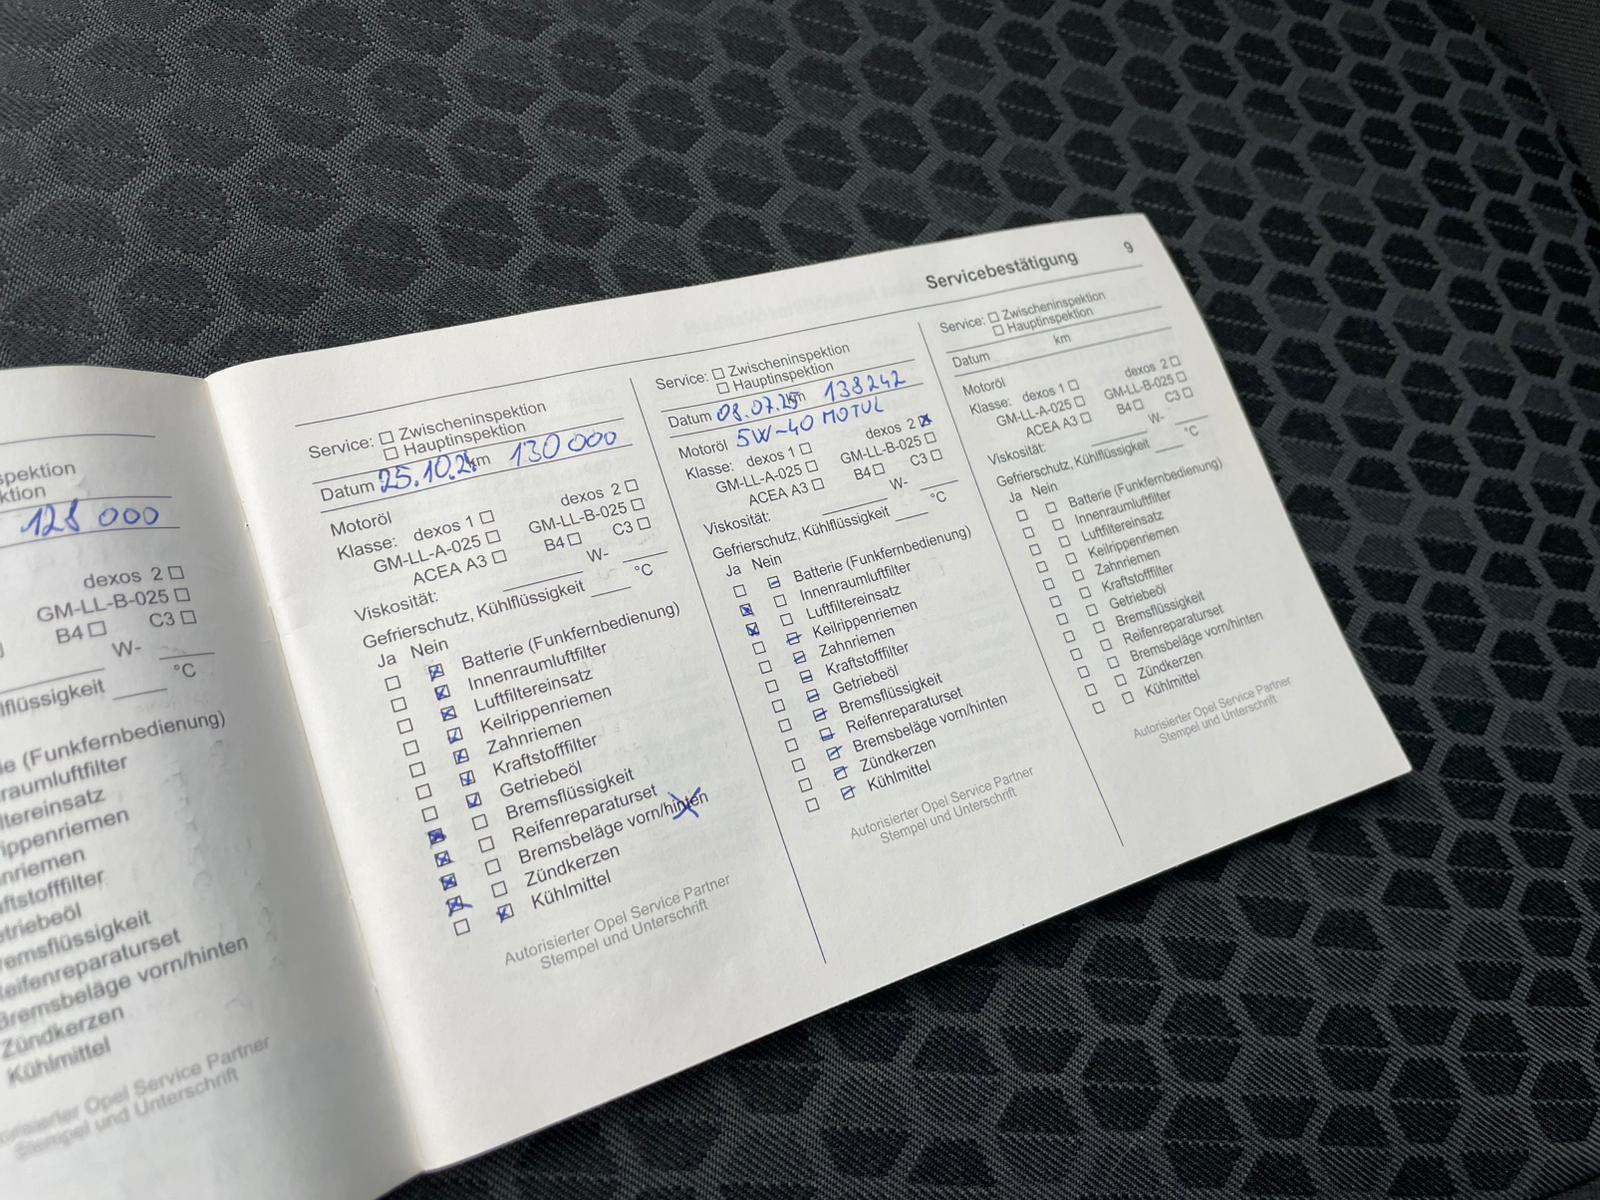 spektion
ktion
128 000
dexos 2
GM-LL-B-025
B4 C3
W-
°C
lflüssigkeit
e (Funkfernbedienung)
raumluftfilter
tereinsatz
ippenriemen
nriemen
ftstofffilter
triebeöl
emsflüssigkeit
eifenreparaturset
Bremsbeläge vorn/hinten
Zündkerzen
Kühlmittel
torisierter Opel Service Partner
Stempel und Unterschrift
Servicebestätigung 9
Service: Zwischeninspektion
Hauptinspektion
Datum 25.10.24 km 130 000
Motoröl
Klasse: dexos 1 dexos 2
GM-LL-A-025 GM-LL-B-025
ACEA A3 B4 C3
Viskosität: W-
Gefrierschutz, Kühlflüssigkeit °C
Ja Nein
Batterie (Funkfernbedienung)
Innenraumluftfilter
Luftfiltereinsatz
Keilrippenriemen
Zahnriemen
Kraftstofffilter
Getriebeöl
Bremsflüssigkeit
Reifenreparaturset
Bremsbeläge vorn/hinten
Zündkerzen
Kühlmittel
Autorisierter Opel Service Partner
Stempel und Unterschrift
Service: Zwischeninspektion
Hauptinspektion
Datum 08.07.25 km 138242
Motoröl 5W-40 MOTUL
Klasse: dexos 1 dexos 2
GM-LL-A-025 GM-LL-B-025
ACEA A3 B4 C3
Viskosität: W-
Gefrierschutz, Kühlflüssigkeit °C
Ja Nein
Batterie (Funkfernbedienung)
Innenraumluftfilter
Luftfiltereinsatz
Keilrippenriemen
Zahnriemen
Kraftstofffilter
Getriebeöl
Bremsflüssigkeit
Reifenreparaturset
Bremsbeläge vorn/hinten
Zündkerzen
Kühlmittel
Autorisierter Opel Service Partner
Stempel und Unterschrift
Service: Zwischeninspektion
Hauptinspektion
Datum km
Motoröl
Klasse: dexos 1 dexos 2
GM-LL-A-025 GM-LL-B-025
ACEA A3 B4 C3
Viskosität: W-
Gefrierschutz, Kühlflüssigkeit °C
Ja Nein
Batterie (Funkfernbedienung)
Innenraumluftfilter
Luftfiltereinsatz
Keilrippenriemen
Zahnriemen
Kraftstofffilter
Getriebeöl
Bremsflüssigkeit
Reifenreparaturset
Bremsbeläge vorn/hinten
Zündkerzen
Kühlmittel
Autorisierter Opel Service Partner
Stempel und Unterschrift